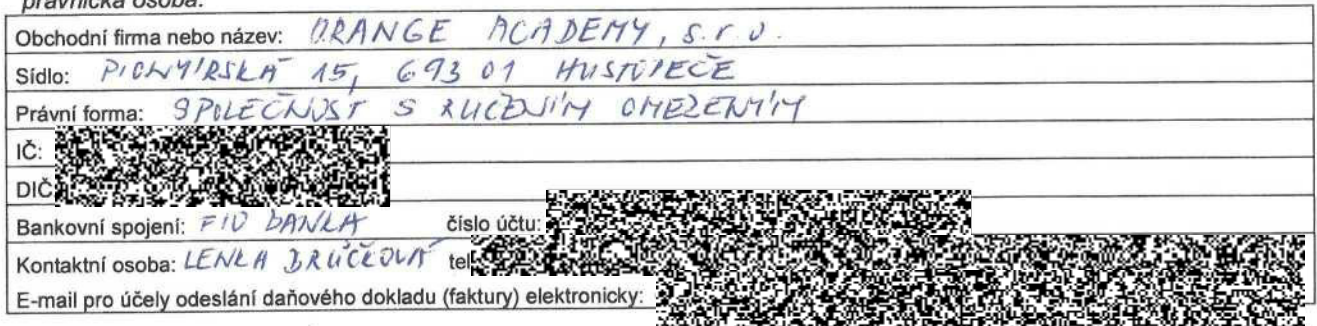 právnická osoba:
Obchodní firma nebo název: ORANGE ACADEMY, s.r.o.
Sídlo: PIONÝRSKÁ 15, 693 01 HUSTOPEČE
Právní forma: SPOLEČNOST S RUČENÍM OMEZENÝM
IČ:
DIČ
Bankovní spojení: FIO BANKA číslo účtu:
Kontaktní osoba: LENKA BRŮČKOVÁ tel
E-mail pro účely odeslání daňového dokladu (faktury) elektronicky: